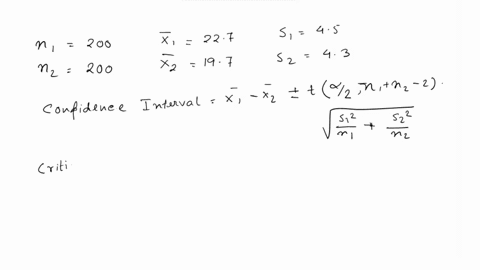 n₁ = 200 x̄₁ = 22.7 S₁ = 4.5
n₂ = 200 x̄₂ = 19.7 S₂ = 4.3
Confidence Interval = x̄₁ - x̄₂ ± t(α/2, n₁+n₂-2).
√(s₁²/n₁ + s₂²/n₂)
Criti